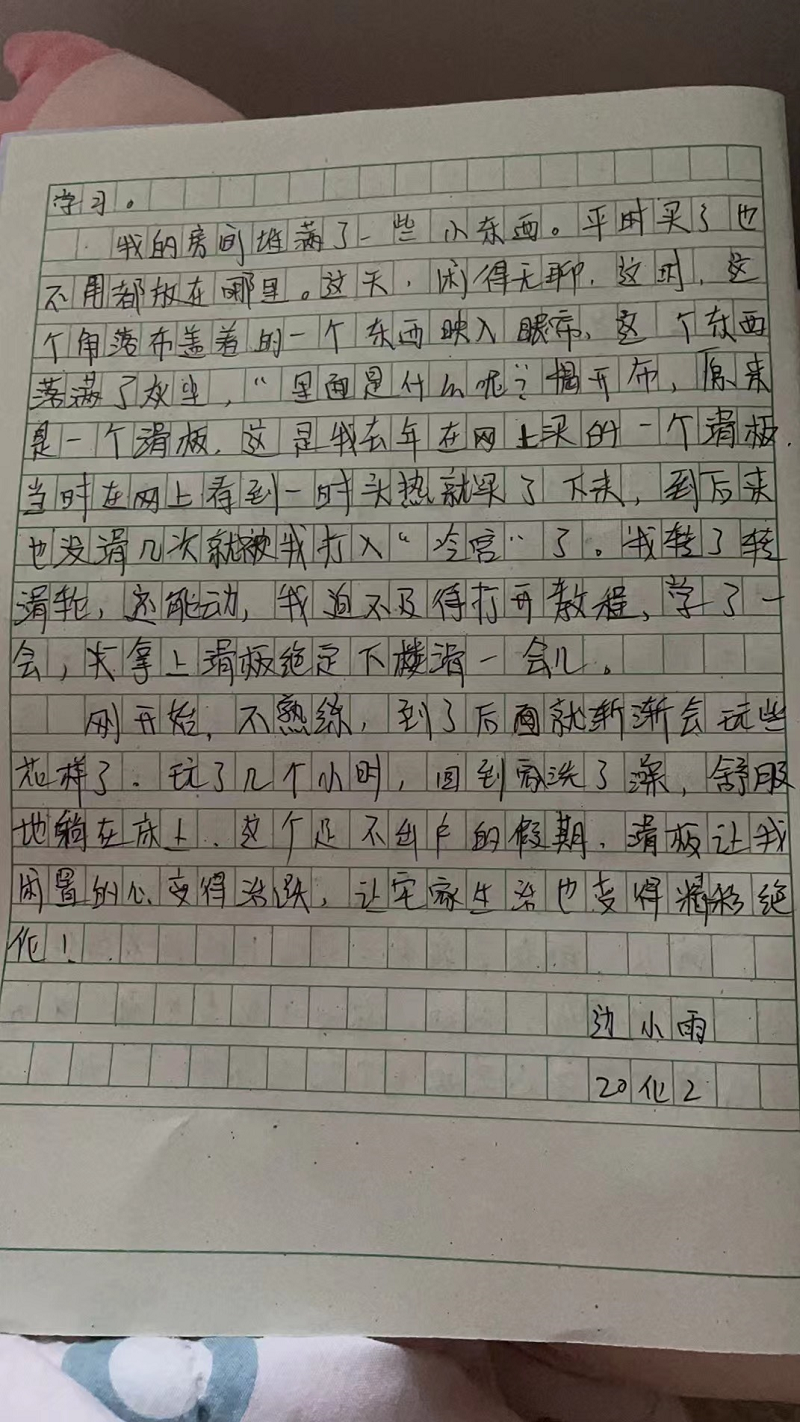 学习。
我的房间堆满了一些小东西。平时买了也
不用都放在哪里。这天,闲得无聊,这时,这
个角落布盖着的一个东西映入眼帘,这个东西
落满了灰尘,“里面是什么呢?揭开布,原来
是一个滑板,这是我去年在网上买的一个滑板.
当时在网上看到一时头热就买了下来,到后来
也没滑几次就被我打入“冷宫”了。我转了转
滑轮,还能动,我迫不及待打开教程,学了一
会,夹拿上滑板绝定下楼滑一会儿。
刚开始,不熟练,到了后面就渐渐会玩些
花样了.玩了几个小时,回到家洗了澡,舒服
地躺在床上.这个足不出户的假期.滑板让我
闲置的心变得活跃,让宅家生活也变得精彩绝
伦!
边小雨
20化2